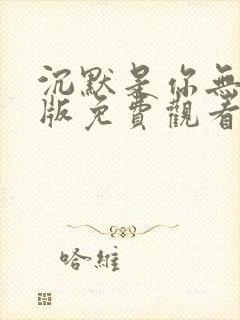 沉默是你無
版免費觀看
哈維